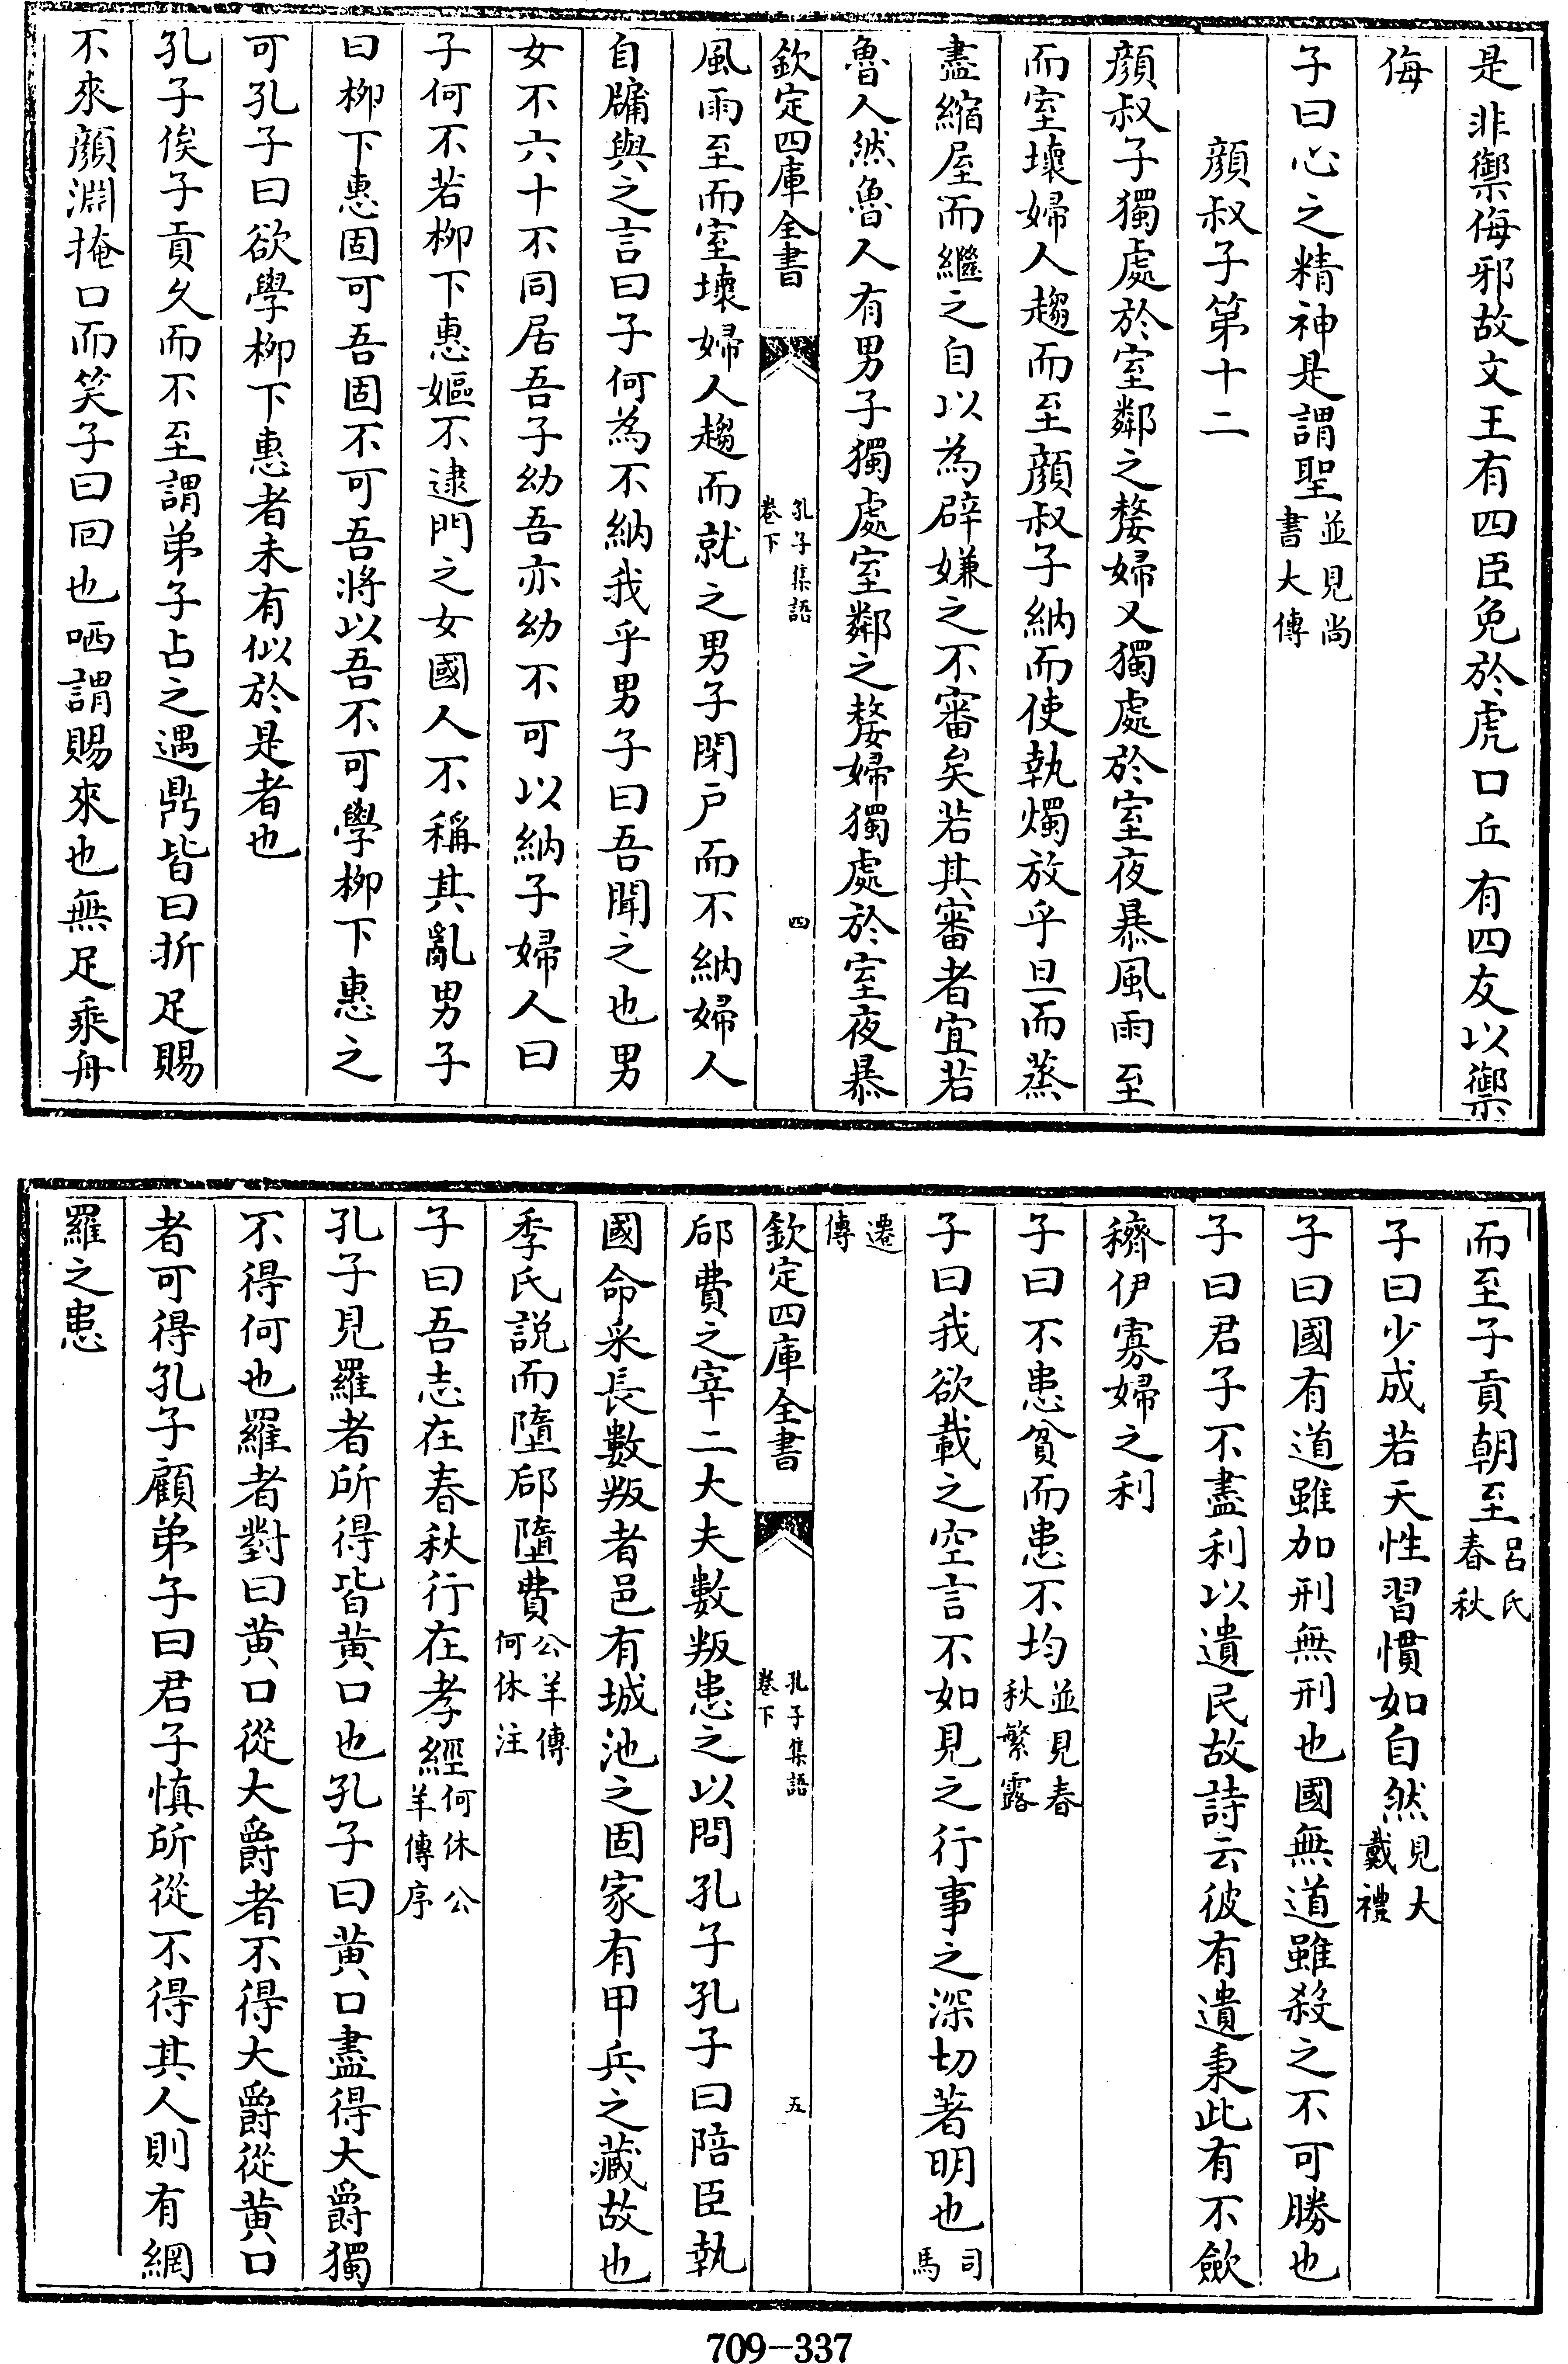 是非禦侮邪故文王有四臣免於虎口丘有四友以禦
侮
子曰心之精神是謂聖並見尚書大傳
顔叔子第十二
顔叔子獨處於室鄰之嫠婦又獨處於室夜暴風雨至
而室壞婦人趨而至顔叔子納而使執燭放乎旦而蒸
盡縮屋而繼之自以為辟嫌之不審矣若其審者宜若
魯人然魯人有男子獨處室鄰之嫠婦獨處於室夜暴
欽定四庫全書
孔子集語
卷下
四
風雨至而室壞婦人趨而就之男子閉戸而不納婦人
自牖與之言曰子何為不納我乎男子曰吾聞之也男
女不六十不同居吾子幼吾亦幼不可以納子婦人曰
子何不若栁下惠嫗不逮門之女國人不稱其亂男子
曰栁下惠固可吾固不可吾將以吾不可學栁下惠之
可孔子曰欲學栁下惠者未有似於是者也
孔子俟子貢久而不至謂弟子占之遇鼎皆曰折足賜
不來顔淵掩口而笑子曰回也哂謂賜來也無足乘舟
而至子貢朝至吕氏春秋
子曰少成若天性習慣如自然見大戴禮
子曰國有道雖加刑無刑也國無道雖殺之不可勝也
子曰君子不盡利以遺民故詩云彼有遺秉此有不歛
穧伊寡婦之利
子曰不患貧而患不均並見春秋繁露
子曰我欲載之空言不如見之行事之深切著明也司馬
遷傳
欽定四庫全書
孔子集語
卷下
五
郈費之宰二大夫數叛患之以問孔子孔子曰陪臣執
國命采長數叛者邑有城池之固家有甲兵之藏故也
季氏説而墮郈墮費公羊傳何休注
子曰吾志在春秋行在孝經何休公羊傳序
孔子見羅者所得皆黄口也孔子曰黄口盡得大爵獨
不得何也羅者對曰黄口從大爵者不得大爵從黄口
者可得孔子顧弟子曰君子慎所從不得其人則有網
羅之患
709-337